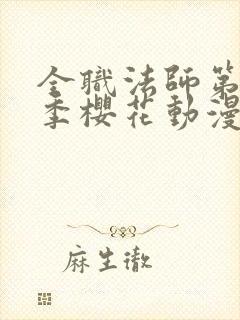 全職法師第
季櫻花動漫
麻生徹